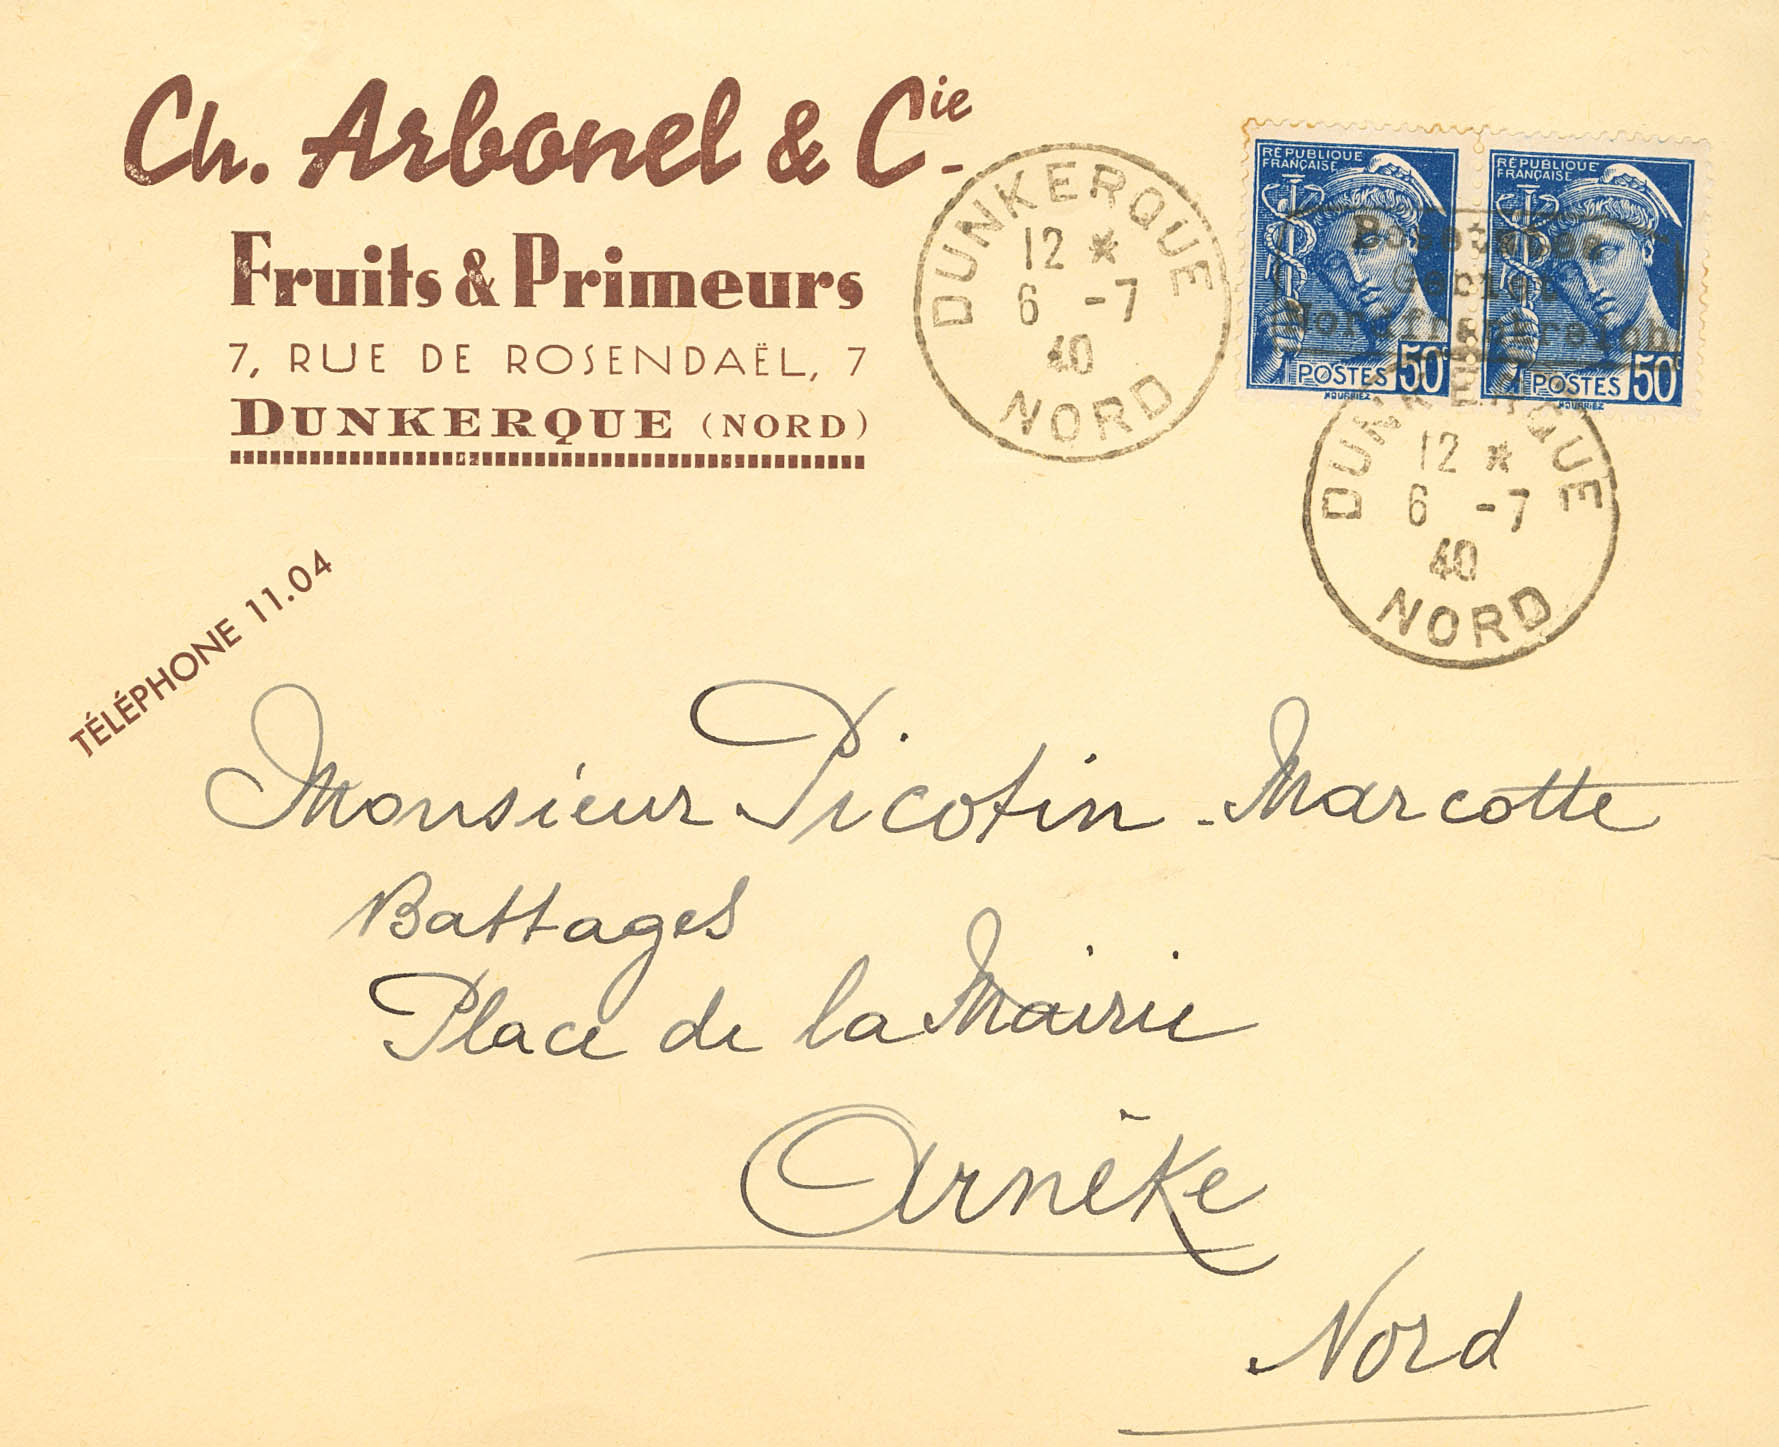 Ch. Arbonel & Cie
Fruits & Primeurs
7, RUE DE ROSENDAËL, 7
DUNKERQUE (NORD)
TÉLÉPHONE 11.04
DUNKERQUE
12 *
6 -7
40
NORD
RÉPUBLIQUE
FRANÇAISE
POSTES 50c
RÉPUBLIQUE
FRANÇAISE
POSTES 50c
Besetztes
Gebiet
Nordfrankreich
DUNKERQUE
12 *
6 -7
40
NORD
Monsieur Picotin-Marcotte
Battages
Place de la Mairie
Arnêke
Nord